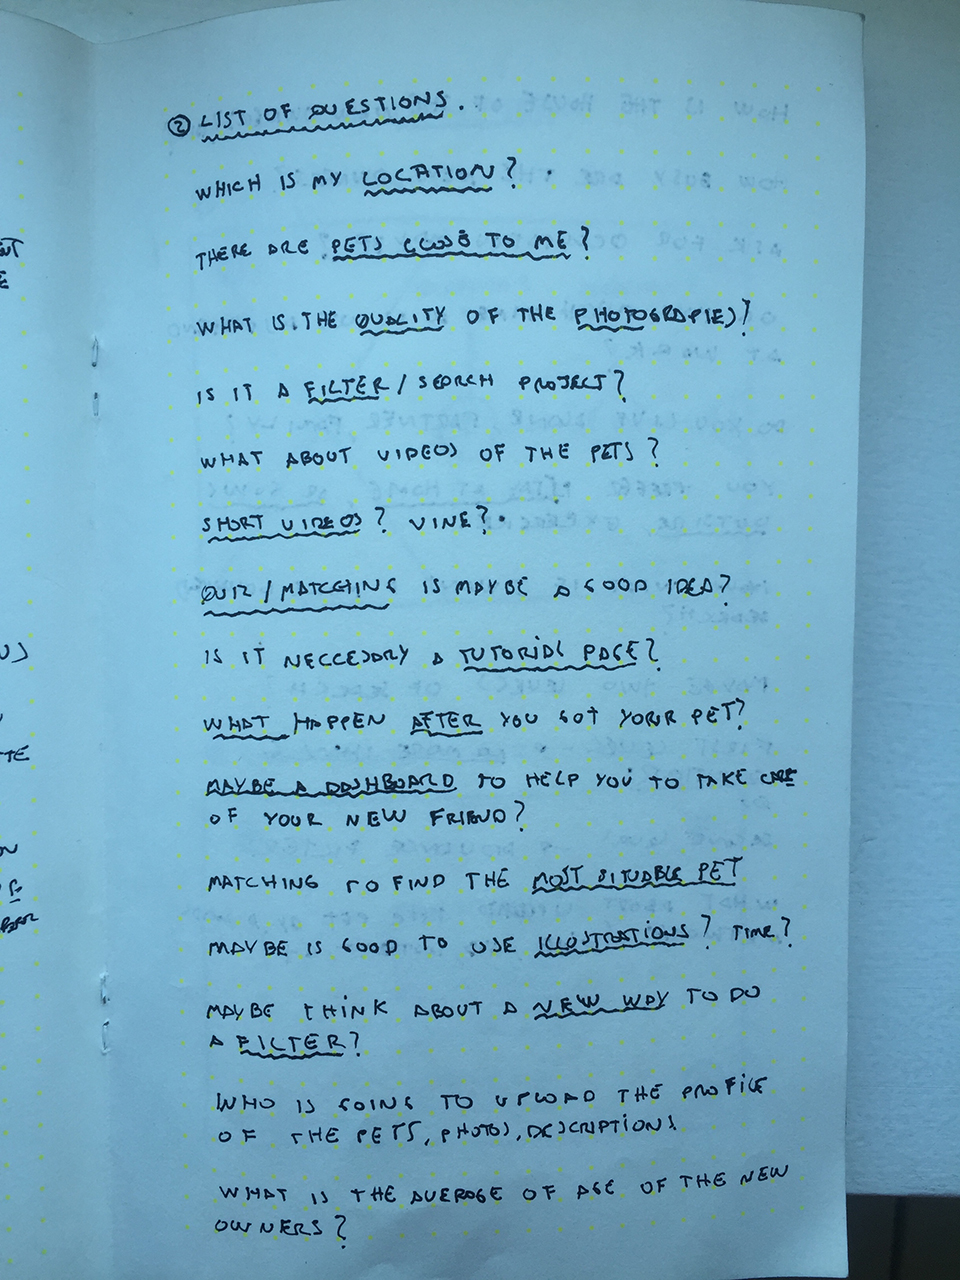 ② LIST OF QUESTIONS.
WHICH IS MY LOCATION?
THERE ARE PETS CLOSE TO ME?
WHAT IS THE QUALITY OF THE PHOTOGRAPIES?
IS IT A FILTER / SEARCH PROJECT?
WHAT ABOUT VIDEOS OF THE PETS?
SHORT VIDEOS? VINE?
QUIZ / MATCHING IS MAYBE A GOOD IDEA?
IS IT NECCESARY A TUTORIAL PAGE?
WHAT HAPPEN AFTER YOU GOT YOUR PET?
MAYBE A DASHBOARD TO HELP YOU TO TAKE CARE
OF YOUR NEW FRIEND?
MATCHING TO FIND THE MOST SITUABLE PET
MAYBE IS GOOD TO USE ILLUSTRATIONS? TIME?
MAYBE THINK ABOUT A NEW WAY TO DO
A FILTER?
WHO IS GOING TO UPLOAD THE PROFILE
OF THE PETS, PHOTOS, DESCRIPTIONS
WHAT IS THE AVERAGE OF AGE OF THE NEW
OWNERS?